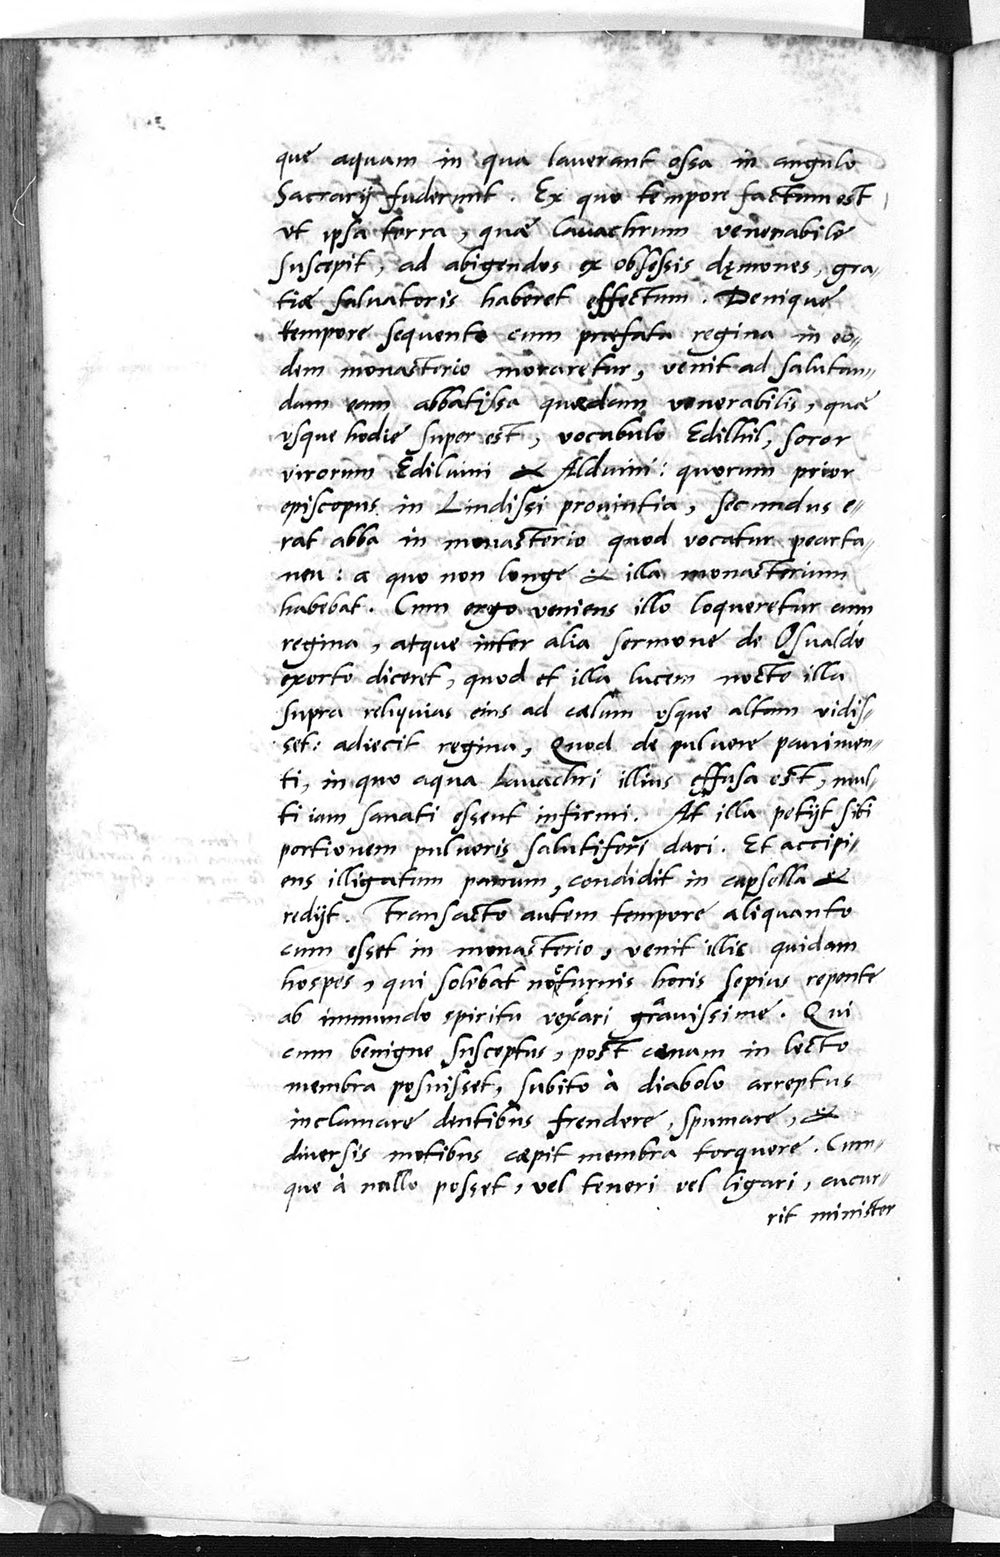 que aquam in qua lauerant ossa in angulo
Sacrarij fuderunt. Ex quo tempore factum est
vt ipsa terra, quæ lauachrum venerabile
suscepit, ad abigendos ex obsessis dęmones, gra-
tiæ saluatoris haberet effectum. Denique
tempore sequente cum præfata regina in eo-
dem monasterio moraretur, venit ad salutan-
dam eam abbatissa quædam venerabilis, quæ
vsque hodie super est, vocabulo Edilhil, soror
virorum Ediluini & Alduini: quorum prior
episcopus in Lindissi prouintia, secundus e-
rat abba in monasterio quod vocatur pearta-
neu: a quo non longe & illa monasterium
habebat. Cum ergo veniens illo loqueretur cum
regina, atque inter alia sermone de Osualdo
exorto diceret, quod et illa lucem nocte illa
supra reliquias eius ad cælum vsque altam vidis-
set: adiecit regina, Quod de puluere pauimen-
ti, in quo aqua Lauachri illius effusa est, mul-
ti iam sanati essent infirmi. At illa petijt sibi
portionem pulueris salutiferi dari. Et accipi-
ens illigatum panum, condidit in capsella &
redijt. Transacto autem tempore aliquanto
cum esset in monasterio, venit illic quidam
hospes, qui solebat nocturnis horis sepius repente
ab immundo spiritu vexari grauissime. Qui
cum benigne susceptus, post cænam in lecto
membra posuisset, subito à diabolo arreptus
inclamare dentibus frendere, spumare, &
diuersis motibus cæpit membra torquere. Cum-
que à nullo posset, vel teneri vel ligari, cucur-
rit minister